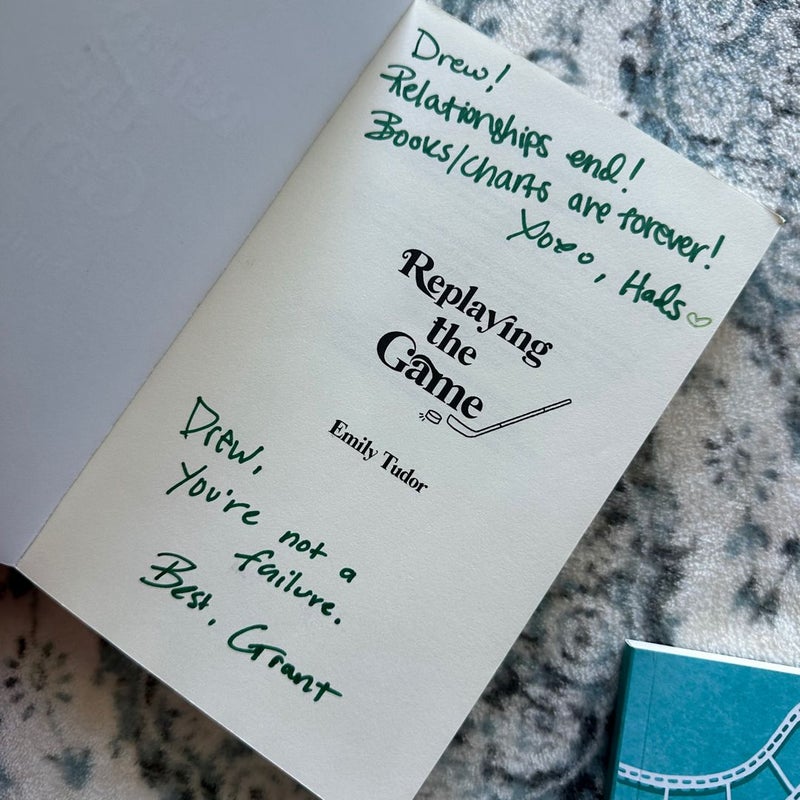 Drew!
Relationships end!
Books/Charts are forever!
Xoxo, Hads
Replaying
the
Game
Emily Tudor
Drew,
You're not a
failure.
Best, Grant